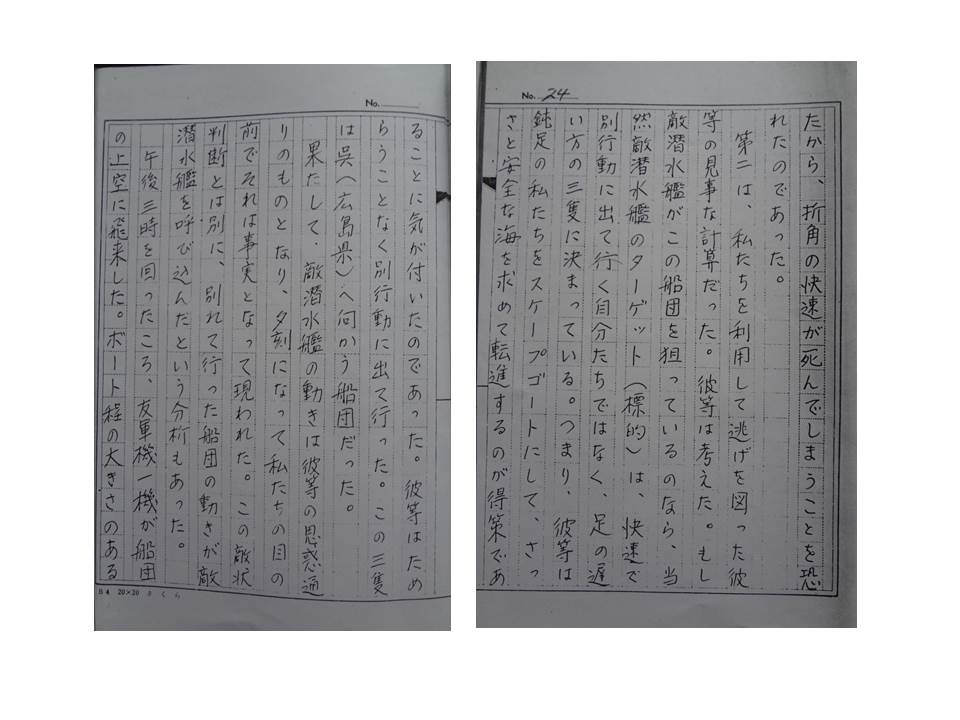 No. 24
たから、折角の快速が死んでしまうことを恐
れたのであった。
第二は、私たちを利用して逃げを図った彼
等の見事な計算だった。彼等は考えた。もし
敵潜水艦がこの船団を狙っているのなら、当
然敵潜水艦のターゲット（標的）は、快速で
別行動に出て行く自分たちではなく、足の遅
い方の三隻に決まっている。つまり、彼等は
鈍足の私たちをスケープゴートにして、さっ
さと安全な海を求めて転進するのが得策であ
No.
ることに気が付いたのであった。彼等はため
らうことなく別行動に出て行った。この三隻
は呉（広島県）へ向かう船団だった。
果たして、敵潜水艦の動きは彼等の思惑通
りのものとなり、夕刻になって私たちの目の
前でそれは事実となって現われた。この敵状
判断とは別に、別れて行った船団の動きが敵
潜水艦を呼び込んだという分析もあった。
午後三時を回ったころ、友軍機一機が船団
の上空に飛来した。ボート程の大きさのある
B4 20×20 さくら